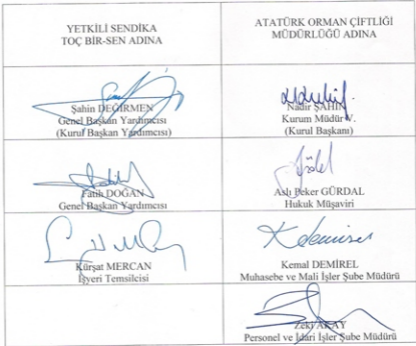 YETKİLİ SENDİKA
TOÇ BİR-SEN ADINA
ATATÜRK ORMAN ÇİFTLİĞİ
MÜDÜRLÜĞÜ ADINA
Şahin DEĞİRMEN
Genel Başkan Yardımcısı
(Kurul Başkan Yardımcısı)
Nadir ŞAHİN
Kurum Müdür V.
(Kurul Başkanı)
Fatih DOĞAN
Genel Başkan Yardımcısı
Aslı Peker GÜRDAL
Hukuk Müşaviri
Kürşat MERCAN
İşyeri Temsilcisi
K demirel
Kemal DEMİREL
Muhasebe ve Mali İşler Şube Müdürü
Zeki AKAY
Personel ve İdari İşler Şube Müdürü